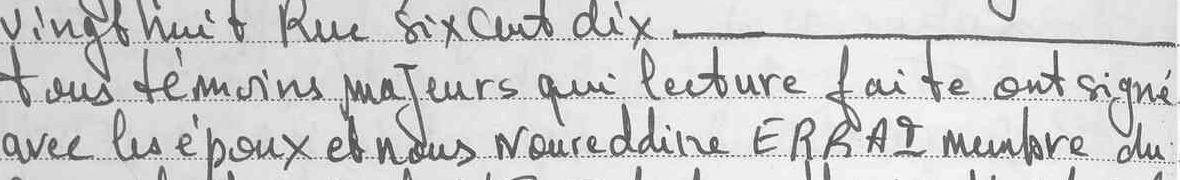 vingt huit Rue Six Cent dix
tous témoins majeurs qui lecture faite ont signé
avec les époux et nous Noureddine ERRAI membre du